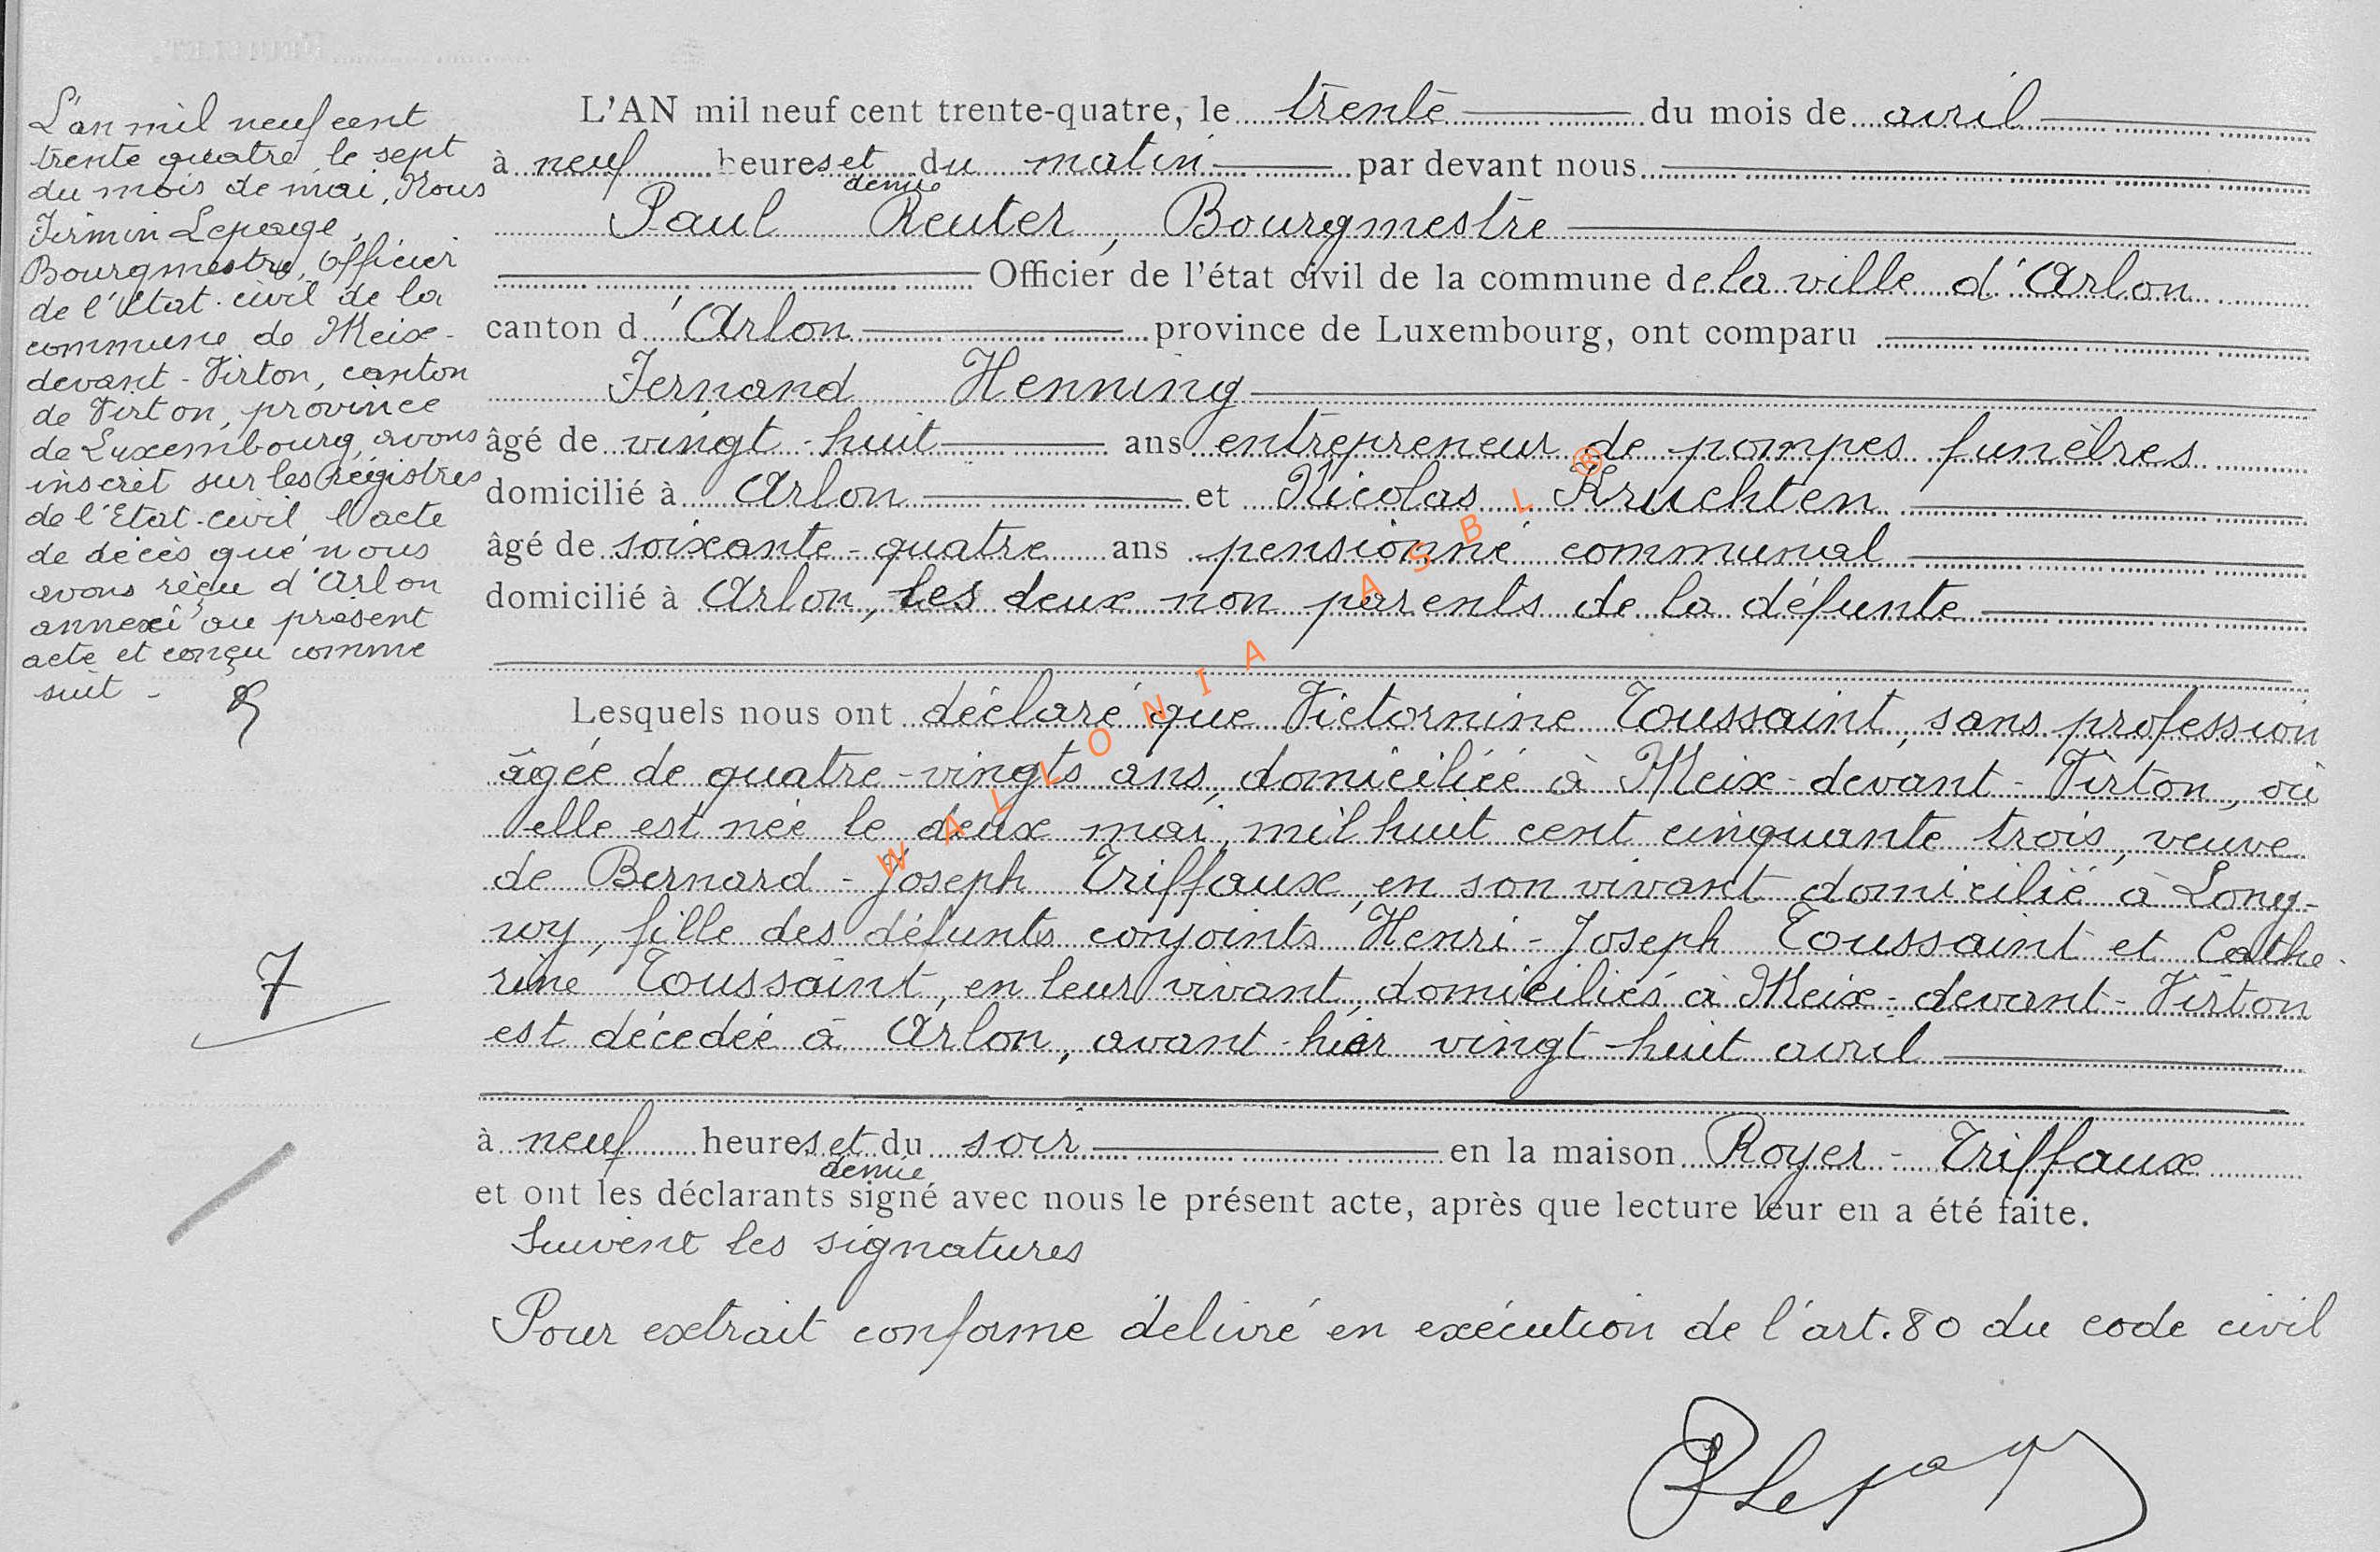 L'an mil neuf cent
trente quatre le sept
du mois de mai, Nous
Firmin Lepage,
Bourgmestre, Officier
de l'Etat-civil de la
commune de Meix-
devant-Virton, canton
de Virton, province
de Luxembourg, avons
inscrit sur les régistres
de l'Etat-civil l'acte
de décès que nous
avons reçu d'Arlon
annexé au présent
acte et conçu comme
suit -
7
L'AN mil neuf cent trente-quatre, le trente du mois de avril
à neuf heures et demie du matin par devant nous
Paul Reuter, Bourgmestre
Officier de l'état civil de la commune de la ville d'Arlon
canton d'Arlon province de Luxembourg, ont comparu
Fernand Henning
âgé de vingt-huit ans entrepreneur de pompes funèbres
domicilié à Arlon et Nicolas Kruchten
âgé de soixante-quatre ans pensionné communal
domicilié à Arlon, les deux non parents de la défunte
Lesquels nous ont déclaré que Victornine Toussaint, sans profession
âgée de quatre-vingts ans, domiciliée à Meix-devant-Virton, où
elle est née le deux mai, mil huit cent cinquante trois, veuve
de Bernard-Joseph Triffaux, en son vivant domicilié à Long-
wy, fille des défunts conjoints Henri-Joseph Toussaint et Cathe-
rine Toussaint, en leur vivant, domiciliés à Meix-devant-Virton
est décedée à Arlon, avant-hier vingt-huit avril
à neuf heures et demie du soir en la maison Royer-Triffaux
et ont les déclarants signé avec nous le présent acte, après que lecture leur en a été faite.
Suivent les signatures
Pour extrait conforme délivré en exécution de l'art. 80 du code civil
FLepage
WALLONIA ASBL ®